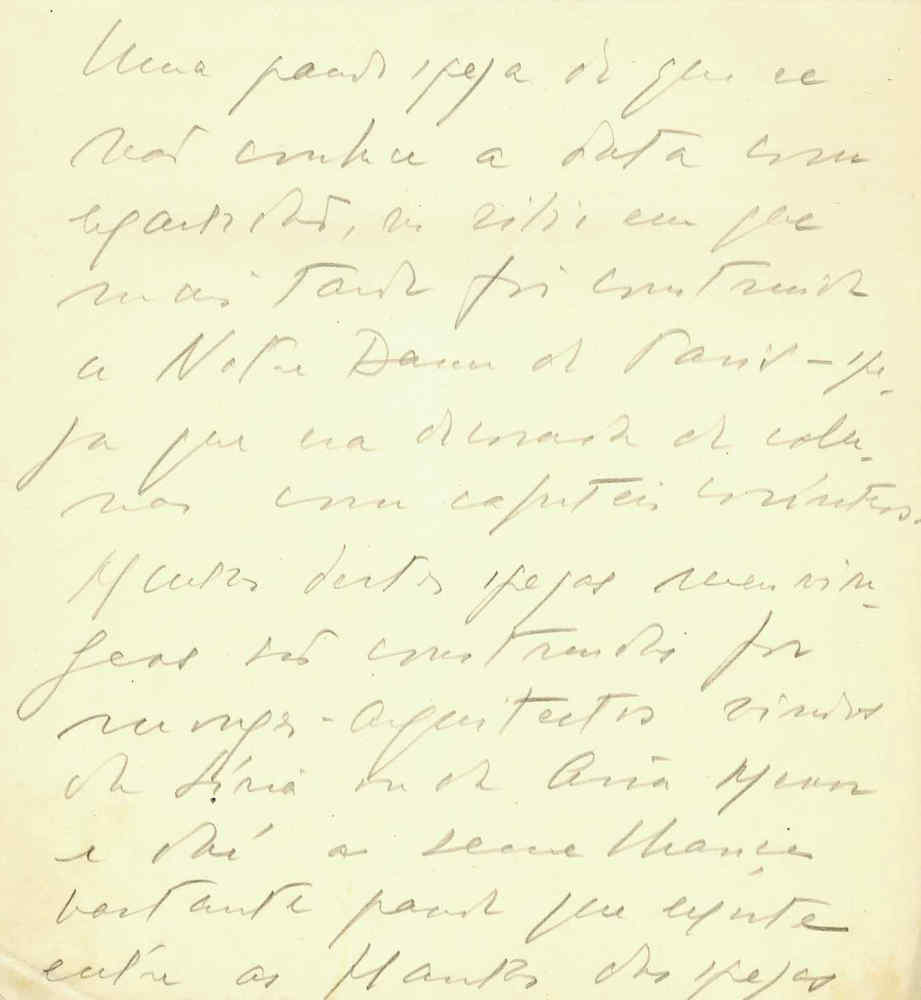 Uma grande igreja de que se
não conhece a data com
exactidão, no sitio em que
mais tarde foi construida
a Notre Dame de Paris – igre-
ja que era decorada de colu-
nas com capiteis corintios.
Muitas destas igrejas merovin-
geas são construidas por
monges-arquitectos vindos
da Síria ou da Asia Menor
e daí a semelhança
bastante grande que existe
entre as plantas das igrejas